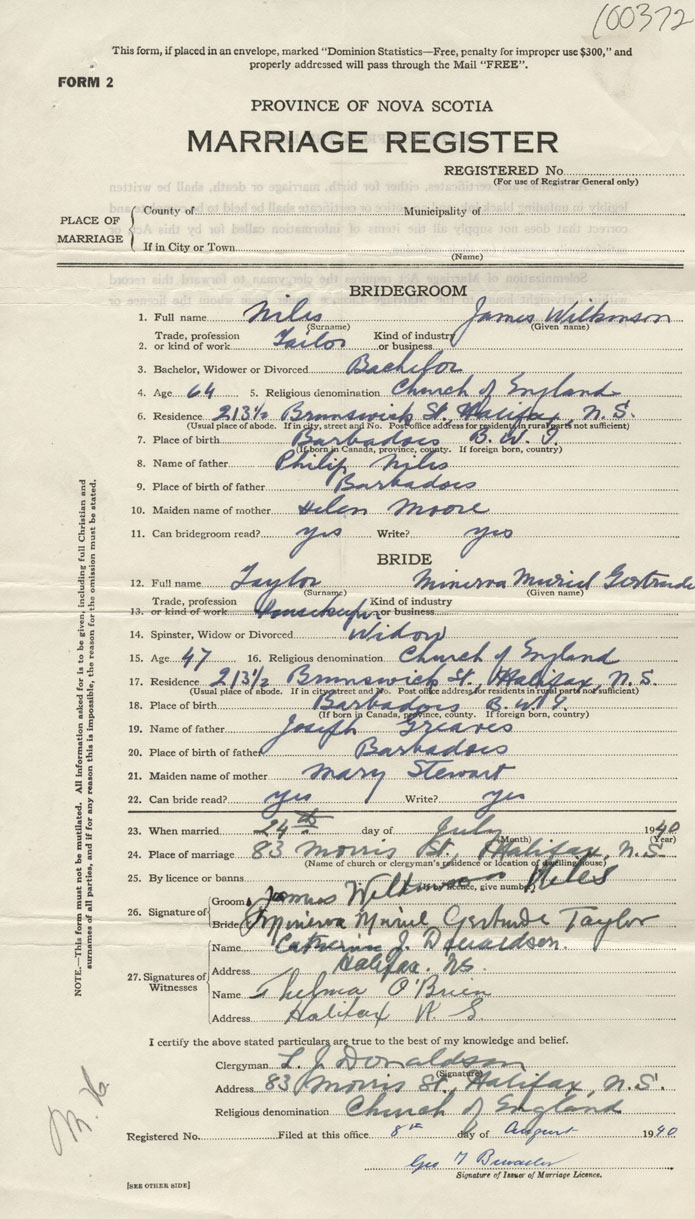 100372
This form, if placed in an envelope, marked "Dominion Statistics—Free, penalty for improper use $300," and
properly addressed will pass through the Mail "FREE".
FORM 2
PROVINCE OF NOVA SCOTIA
MARRIAGE REGISTER
REGISTERED No.
(For use of Registrar General only)
PLACE OF MARRIAGE
County of Municipality of
If in City or Town
(Name)
BRIDEGROOM
1. Full name Niles James Wilkinson
(Surname) (Given name)
2. Trade, profession or kind of work Tailor Kind of industry or business
3. Bachelor, Widower or Divorced Bachelor
4. Age 64 5. Religious denomination Church of England
6. Residence 213½ Brunswick St. Halifax, N.S.
(Usual place of abode. If in city, street and No. Post office address for residents in rural parts not sufficient)
7. Place of birth Barbados B.W.I.
(If born in Canada, province, county. If foreign born, country)
8. Name of father Philip Niles
9. Place of birth of father Barbados
10. Maiden name of mother Helen Moore
11. Can bridegroom read? yes Write? yes
BRIDE
12. Full name Taylor Minerva Muriel Gertrude
(Surname) (Given name)
13. Trade, profession or kind of work Housekeeper Kind of industry or business
14. Spinster, Widow or Divorced Widow
15. Age 47 16. Religious denomination Church of England
17. Residence 213½ Brunswick St. Halifax, N.S.
(Usual place of abode. If in city street and No. Post office address for residents in rural parts not sufficient)
18. Place of birth Barbados B.W.I.
(If born in Canada, province, county. If foreign born, country)
19. Name of father Joseph Greaves
20. Place of birth of father Barbados
21. Maiden name of mother Mary Stewart
22. Can bride read? yes Write? yes
23. When married 24th day of July 1940
(Month) (Year)
24. Place of marriage 83 Morris St., Halifax, N.S.
(Name of church or clergyman's residence or location of dwelling house)
25. By licence or banns
(If by licence, give number)
26. Signature of
Groom James Wilkinson Niles
Bride Minerva Muriel Gertrude Taylor
27. Signatures of Witnesses
Name Catherine J. Donaldson.
Address Halifax. NS.
Name Thelma O'Brien
Address Halifax N.S
I certify the above stated particulars are true to the best of my knowledge and belief.
Clergyman L. J. Donaldson
(Signature)
Address 83 Morris St., Halifax, N.S.
Religious denomination Church of England
Registered No. Filed at this office 8th day of August 1940
Geo
Signature of Issuer of Marriage Licence.
[SEE OTHER SIDE]
NOTE.—This form must not be mutilated. All information asked for is to be given, including full Christian and
surnames of all parties, and if for any reason this is impossible, the reason for the omission must be stated.